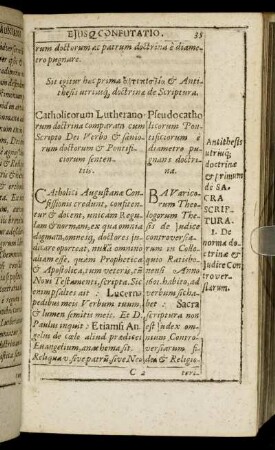 EJUSQ CONFUTATIO. 35
rum doctorum ac patrum doctrina è diame-
tro pugnare.
Sit igitur hæc prima ἀντιστοιχία & Anti-
thesis utriusq; doctrinæ de Scriptura.
Catholicorum Lutherano-
rum doctrina comparata cum
Scripto Dei Verbo & sanio-
rum doctorum & Pontifi-
ciorum senten-
tiis.
CAtholici Augustanæ Con-
fessionis credunt, confiten-
tur & docent, unicam Regu-
lam & normam, ex qua omnia
dogmata, omnesq; doctores judi-
care oporteat, nulla omnino
aliam esse, quàm Prophetica
& Apostolica, tum veteris, tum
Novi Testamenti, scripta. Sic
enim psaltes ait: Lucerna
pedibus meis Verbum tuum,
& lumen semitis meis. Et D.
Paulus inquit: Etiamsi An-
gelus de cœlo aliud prædicet
Evangelium, anathema sit.
Reliqua v. sive patrũ, sive Neo-
Pseudocatho
licorum Pon-
tificiorum è
diametro pu-
gnans doctri-
na.
BAVarico-
rum Theo-
logorum The-
sis de Iudice
Controversia-
rum in Collo-
quio Ratisbo-
nensi Anno
1601. habito, ad
verbum sic ha-
bet: Sacra
scriptura non
est Iudex om-
nium Contro-
versiarum fi-
dei & Religio-
Antithesis
utriusq;
doctrinæ
& primum
de SA-
CRA
SCRIP-
TURA.
1. De
norma do-
ctrinæ &
Iudice Con
trover-
siarum.
C 2